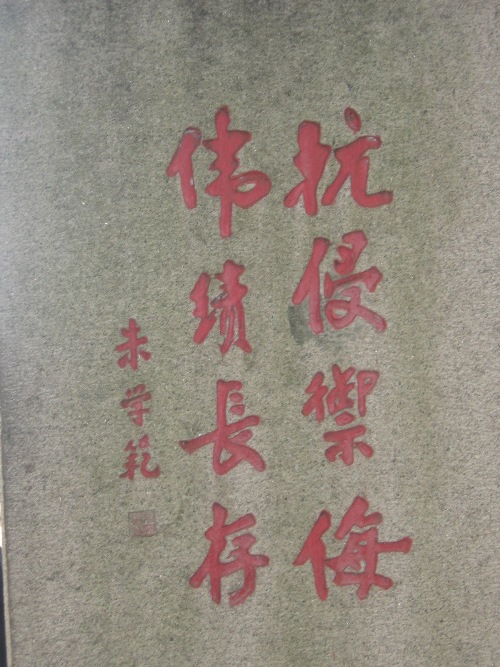 抗侵禦侮
伟绩長存
朱学範